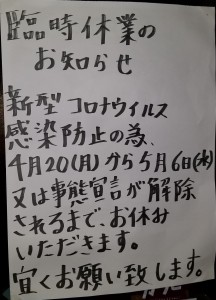 臨時休業の
お知らせ
新型コロナウイルス
感染防止の為、
4月20(月)から5月6日(水)
又は事態宣言が解除
されるまで、お休み
いただきます。
宜くお願い致します。